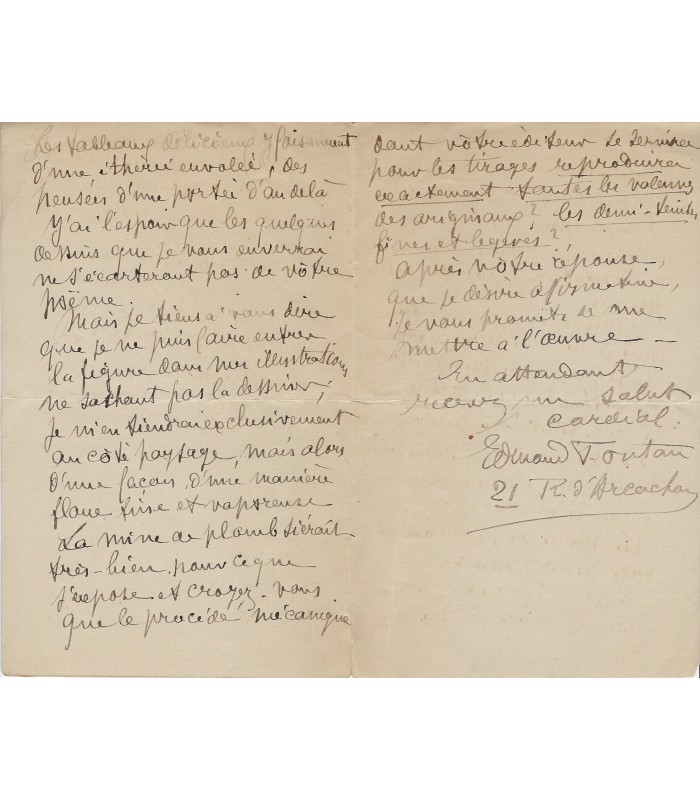 Les tableaux délicieux y foisonnent
d'une éthérée envolée, des
pensées d'une portée d'au delà
J'ai l'espoir que les quelques
dessins que je vous enverrai
ne s'écarteront pas de vôtre
poëme.
Mais je tiens à vous dire
que je ne puis faire entrer
la figure dans mes illustrations
ne sachant pas la dessiner;
je m'en tiendrai exclusivement
au côté paysage, mais alors
d'une façon, d'une manière
floue fine et vaporeuse
La mine de plomb siérait
très-bien pour ce que
j'expose et croyez-vous
que le procédé mécanique
dont vôtre éditeur se servira
pour les tirages reproduira
exactement toutes les valeurs
des originaux? les demi-teintes
fines et legères?,
après vôtre réponse,
que je désire affirmative,
je vous promets de me
mettre à l'œuvre —
En attendant
recevez un salut
cordial.
Edmond Fontan
21 R. d'Arcachon